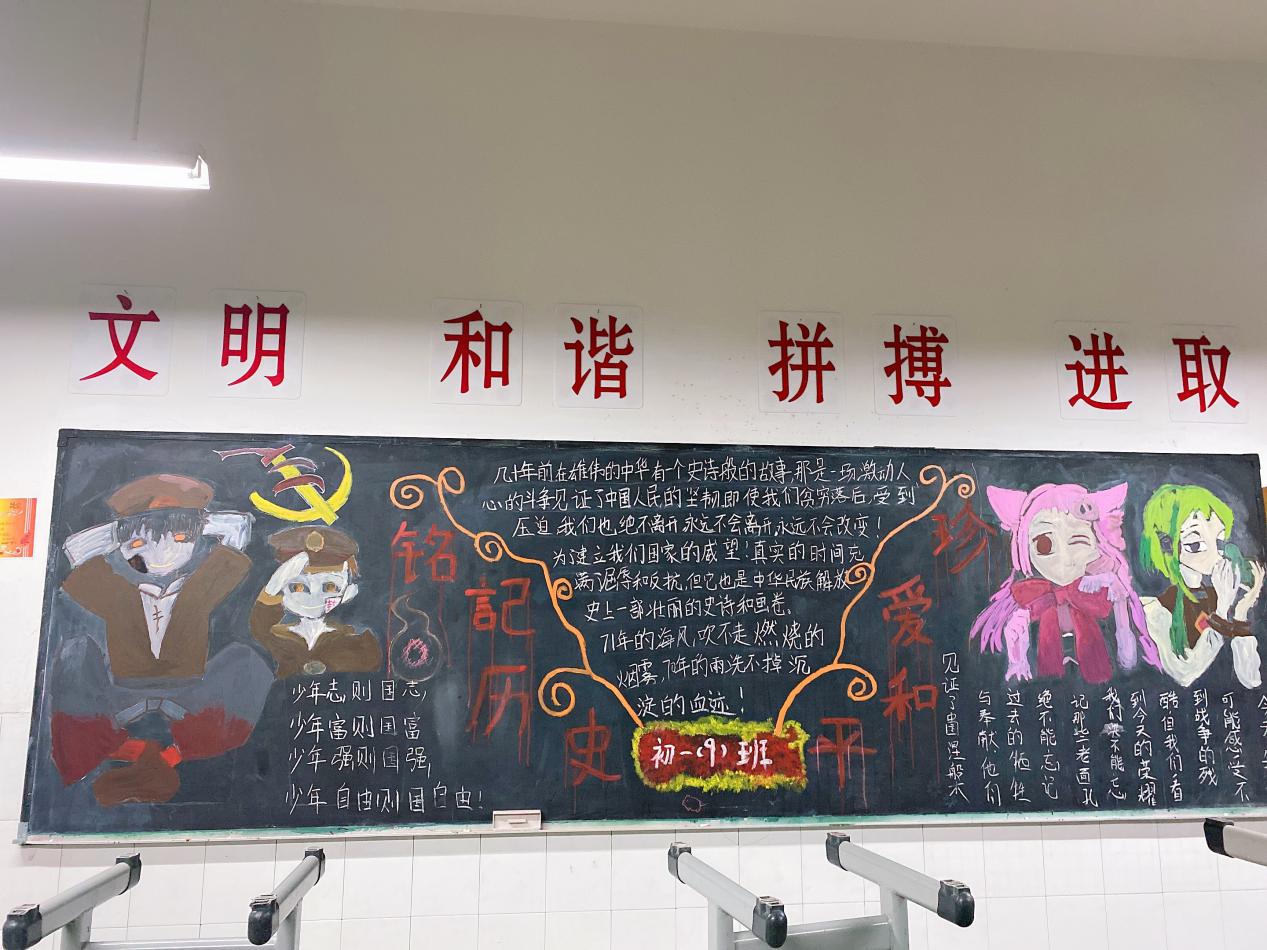 文明 和谐 拼搏 进取
铭記历史
珍爱和平
几十年前在雄伟的中华有一个史诗般的故事,那是一场激动人
心的斗争见证了中国人民的坚韧,即使我们贫穷落后,受到
压迫,我们也绝不离开,永远不会离开,永远不会改变!
为建立我们国家的威望!真实的时间充
满了屈辱和反抗,但它也是中华民族解放
史上一部壮丽的史诗和画卷。
71年的海风,吹不走燃烧的
烟雾,70年的雨洗不掉沉
淀的血迹!
初一(9)班
少年志,则国志,
少年富则国富
少年强则国强,
少年自由则国自由!
可能感受不
到战争的残
酷但我们看
到今天的荣耀
我们不能忘
记那些老面孔
绝不能忘记
过去的牺牲
与奉献他们
见证了凰涅般木